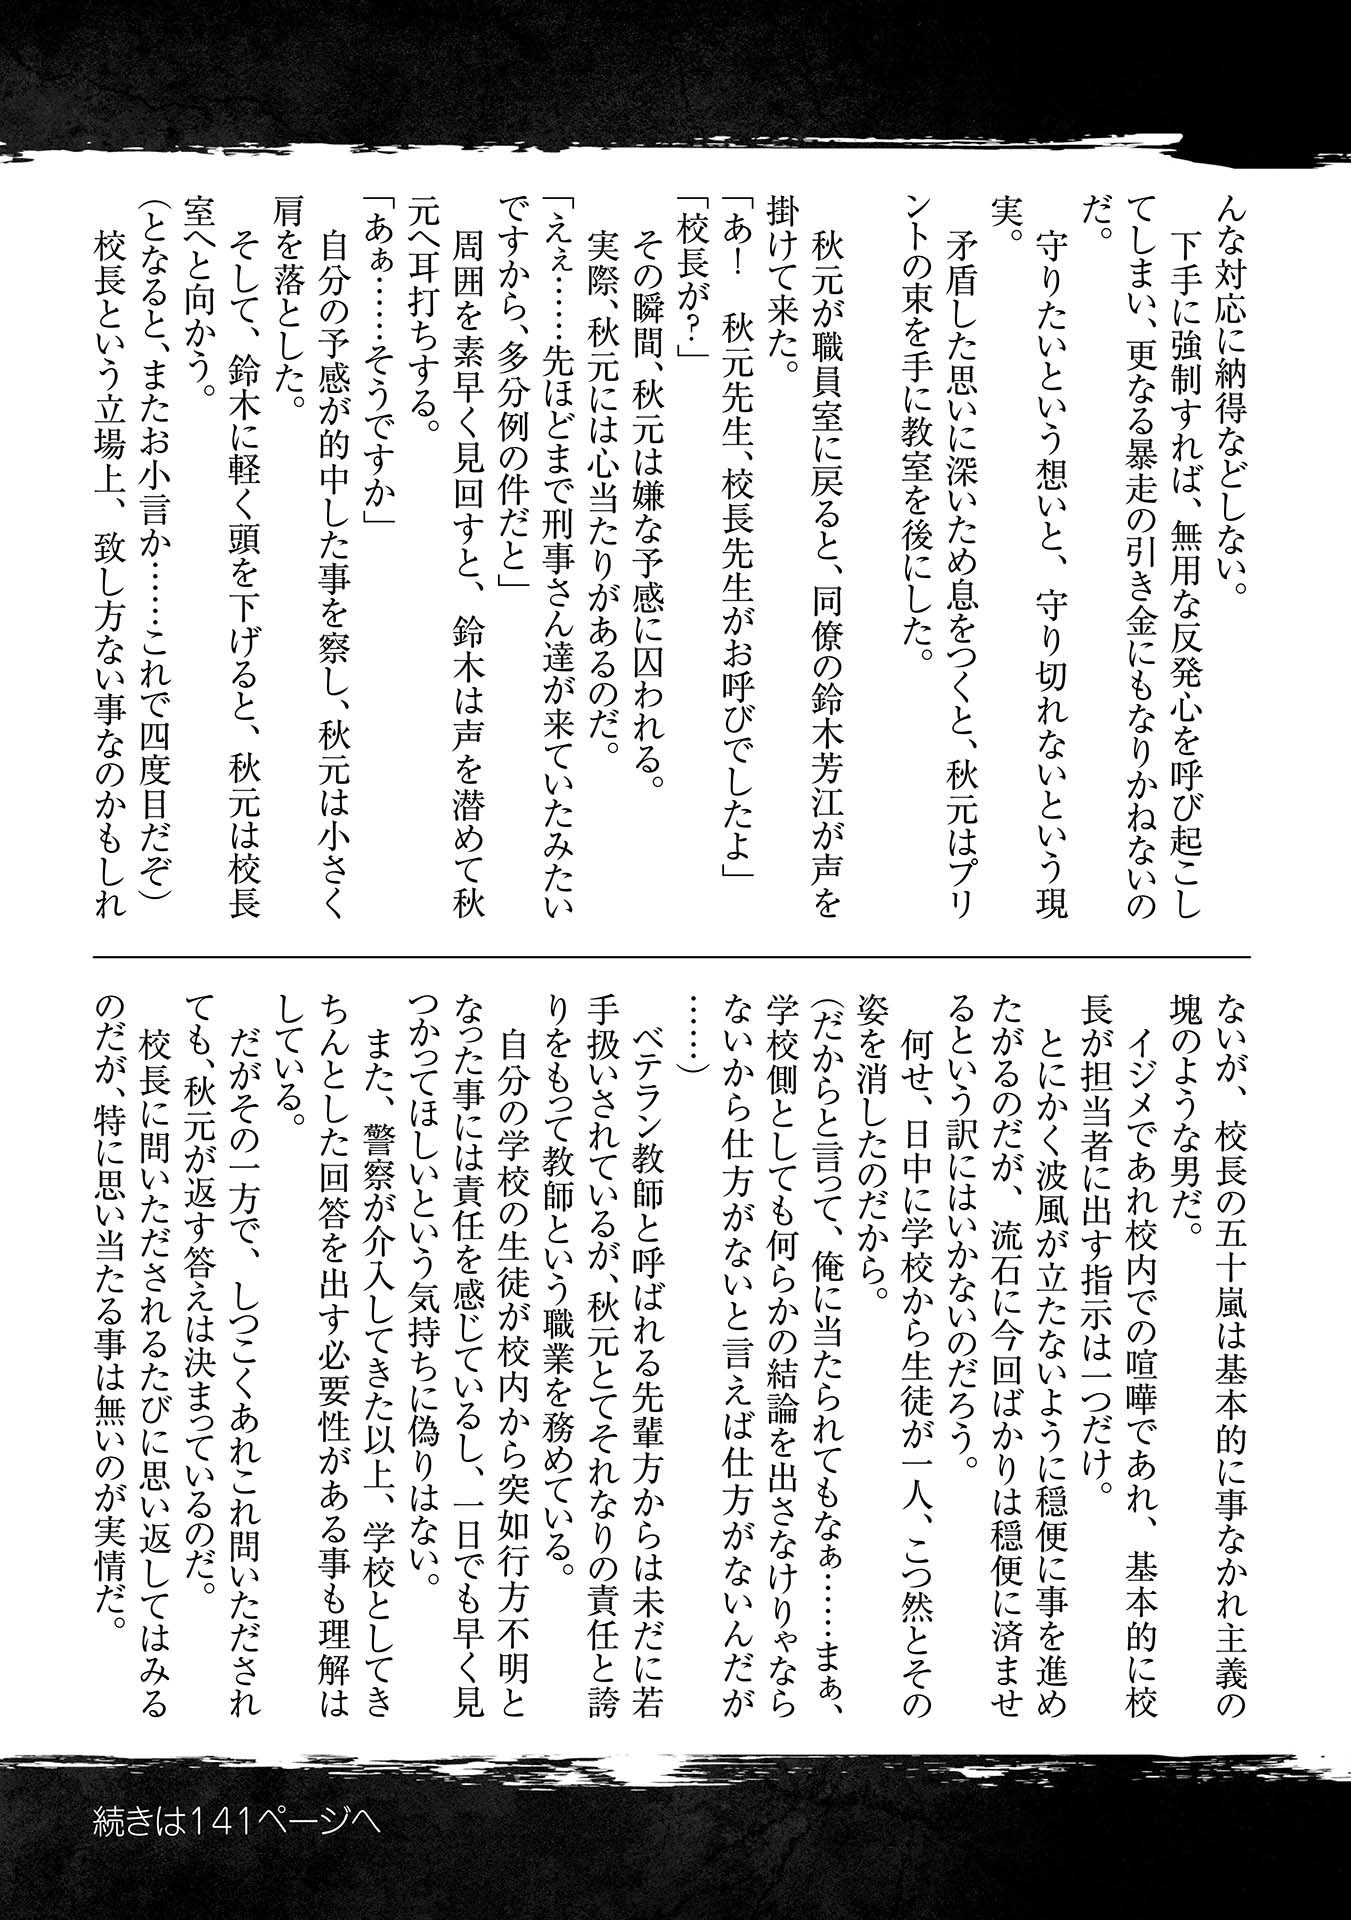 んな対応に納得などしない。
　下手に強制すれば、無用な反発心を呼び起こし
てしまい、更なる暴走の引き金にもなりかねないの
だ。
　守りたいという想いと、守り切れないという現
実。
　矛盾した思いに深いため息をつくと、秋元はプリ
ントの束を手に教室を後にした。
　秋元が職員室に戻ると、同僚の鈴木芳江が声を
掛けて来た。
「あ！　秋元先生、校長先生がお呼びでしたよ」
「校長が？」
　その瞬間、秋元は嫌な予感に囚われる。
　実際、秋元には心当たりがあるのだ。
「えぇ……先ほどまで刑事さん達が来ていたみたい
ですから、多分例の件だと」
　周囲を素早く見回すと、鈴木は声を潜めて秋
元へ耳打ちする。
「あぁ……そうですか」
　自分の予感が的中した事を察し、秋元は小さく
肩を落とした。
　そして、鈴木に軽く頭を下げると、秋元は校長
室へと向かう。
（となると、またお小言か……これで四度目だぞ）
　校長という立場上、致し方ない事なのかもしれ
ないが、校長の五十嵐は基本的に事なかれ主義の
塊のような男だ。
　イジメであれ校内での喧嘩であれ、基本的に校
長が担当者に出す指示は一つだけ。
　とにかく波風が立たないように穏便に事を進め
たがるのだが、流石に今回ばかりは穏便に済ませ
るという訳にはいかないのだろう。
　何せ、日中に学校から生徒が一人、こつ然とその
姿を消したのだから。
（だからと言って、俺に当たられてもなぁ……まぁ、
学校側としても何らかの結論を出さなけりゃなら
ないから仕方がないと言えば仕方がないんだが
……）
　ベテラン教師と呼ばれる先輩方からは未だに若
手扱いされているが、秋元とてそれなりの責任と誇
りをもって教師という職業を務めている。
　自分の学校の生徒が校内から突如行方不明と
なった事には責任を感じているし、一日でも早く見
つかってほしいという気持ちに偽りはない。
　また、警察が介入してきた以上、学校としてき
ちんとした回答を出す必要性がある事も理解は
している。
　だがその一方で、しつこくあれこれ問いただされ
ても、秋元が返す答えは決まっているのだ。
　校長に問いただされるたびに思い返してはみる
のだが、特に思い当たる事は無いのが実情だ。
続きは141ページへ